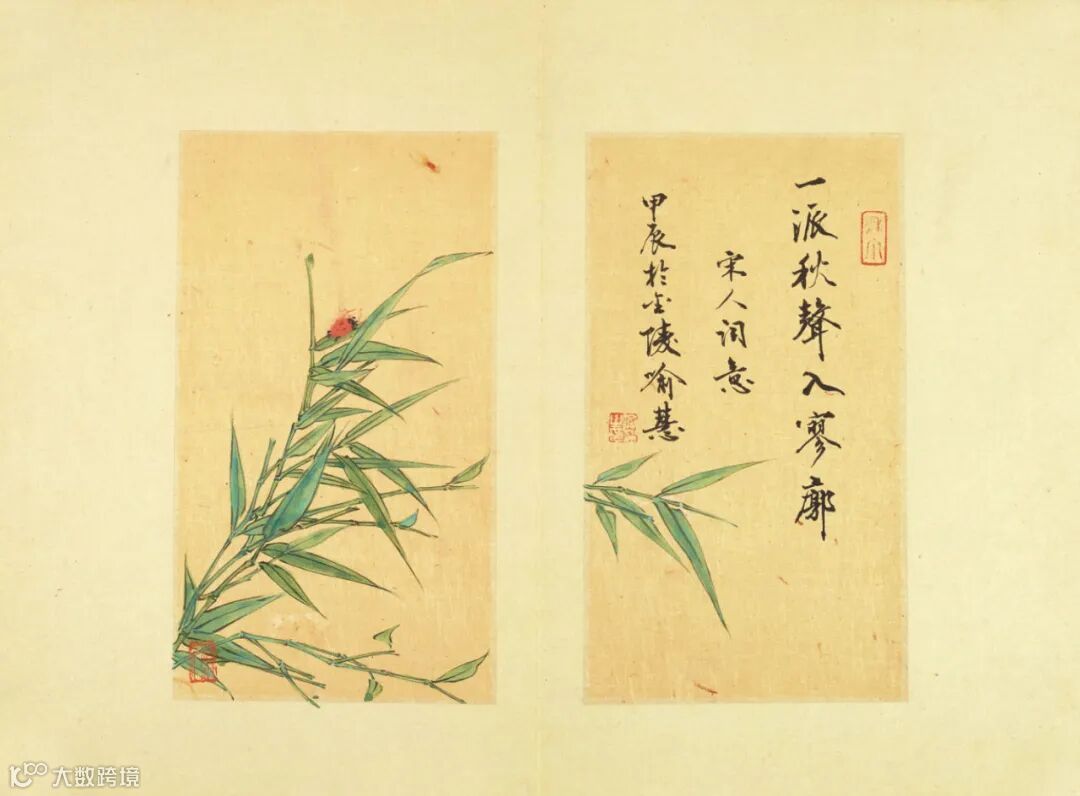 一派秋聲入寥廓
宋人词意
甲辰於金陵喻慧
大数跨境